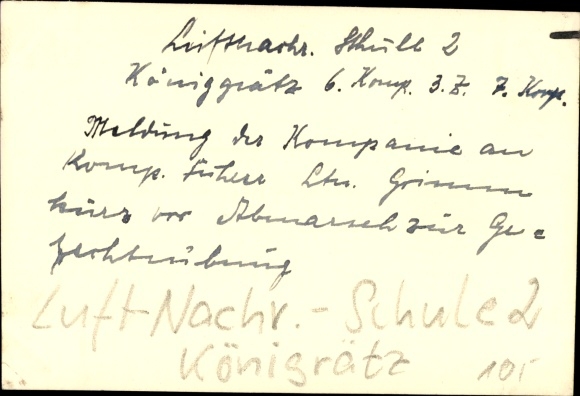 Luftnachr. Schule 2
Königgrätz 6. Komp. 3. Z. 7. Komp.
Meldung der Kompanie an
Komp. Führer Ltn. Grimm
kurz vor Abmarsch zur Ge=
fechtsübung
Luft-Nachr.-Schule 2
Königrätz 105